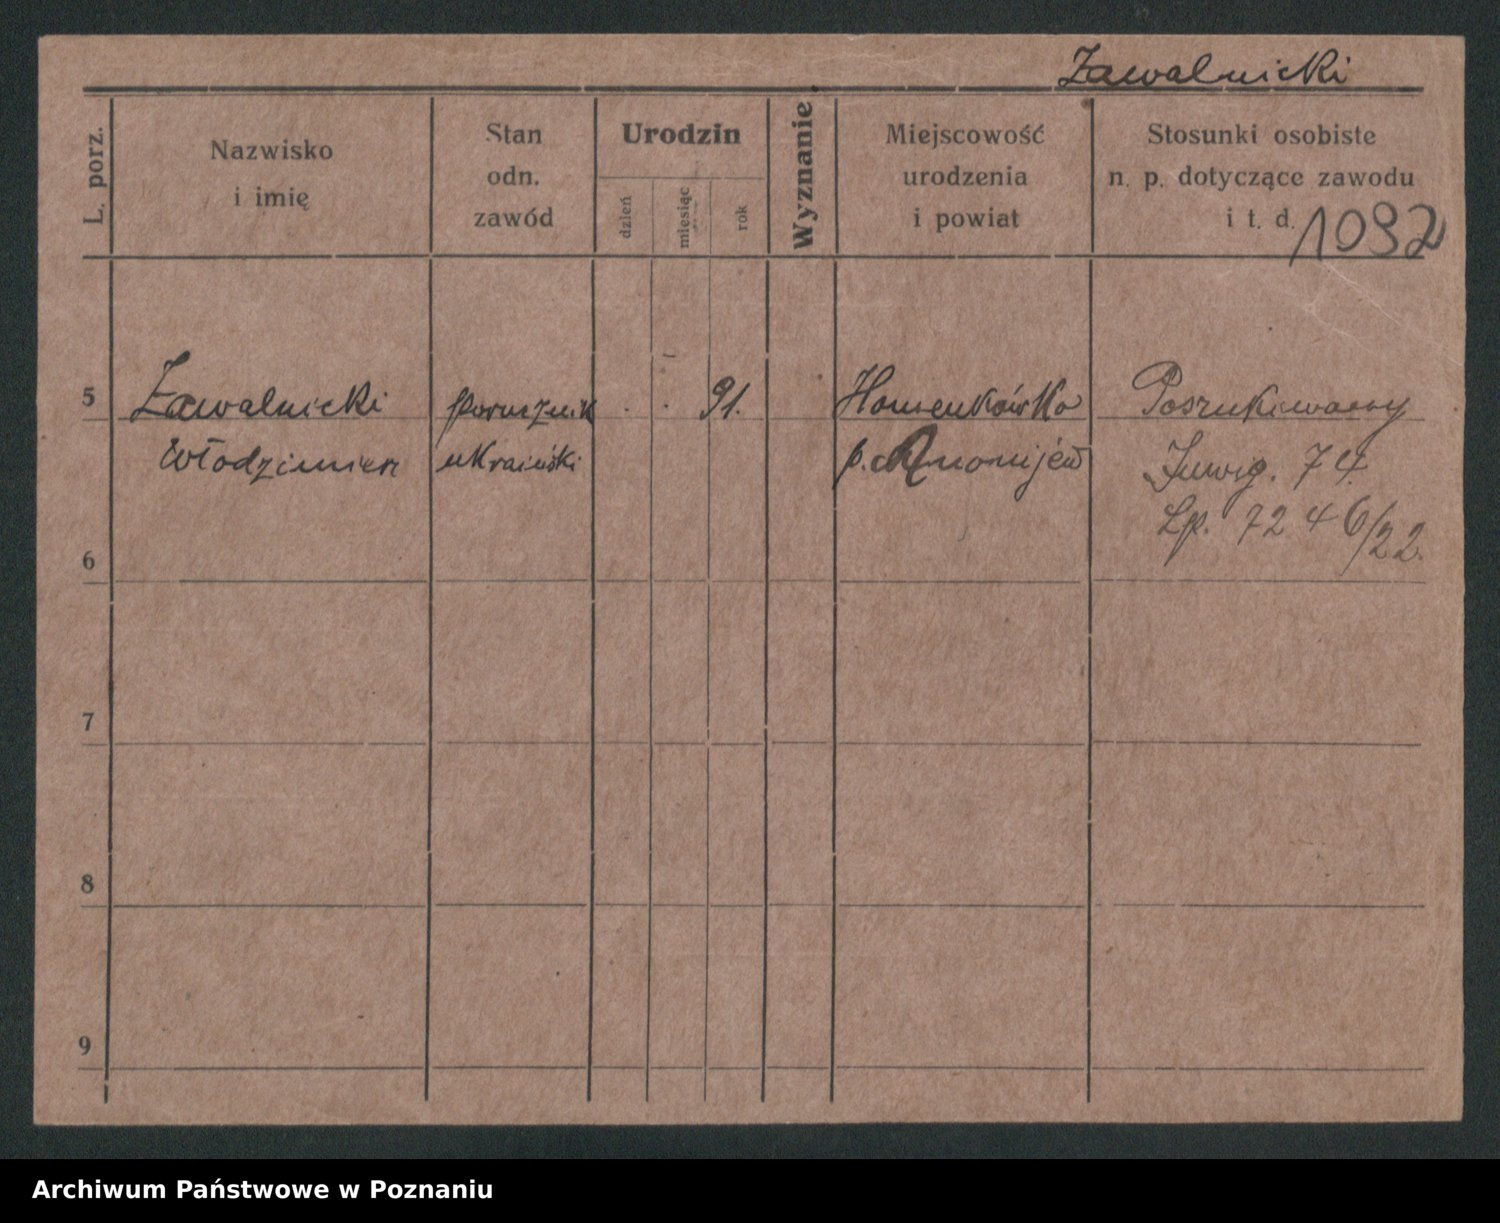 Zawalnicki
L. porz.
Nazwisko
i imię
Stan
odn.
zawód
Urodzin
dzień
miesiąc
rok
Wyznanie.
Miejscowość
urodzenia
i powiat
Stosunki osobiste
n. p. dotyczące zawodu
i t. d.
1092
5 Zawalnicki porucznik 91. Poszukiwany
Włodzimierz ukraiński p.
Inwig. 74.
Lp. 7246/22.
6
7
8
9
Archiwum Państwowe w Poznaniu